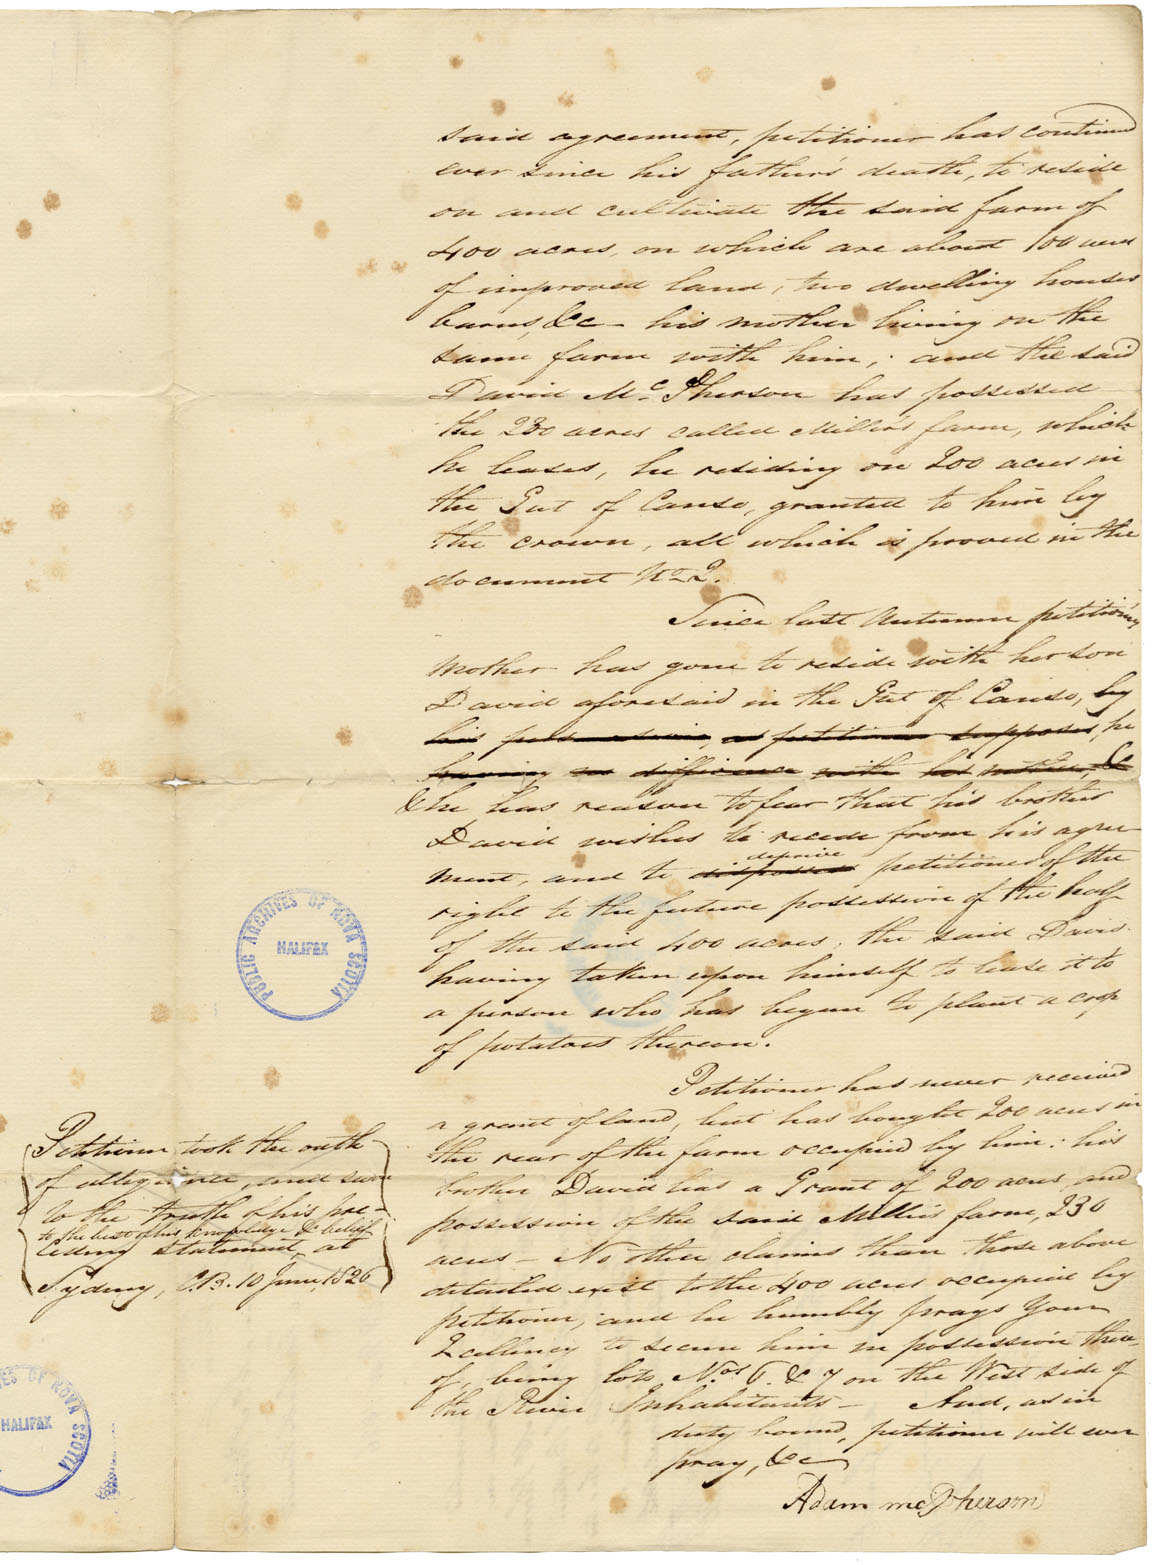 said agreement, petitioner has continued
ever since his father's death, to reside
on and cultivate the said farm of
400 acres, on which are about 100 acres
of improved land, two dwelling houses
barns, &c – his mother living on the
same farm with him; and the said
David McPherson has possessed
the 230 acres called Millers farm, which
he leases, he residing on 200 acres in
the Gut of Canso, granted to him by
the crown, all which is proved in the
document No 2.
Since last Autumn petitioners
mother has gone to reside with her son
David aforesaid in the Gut of Canso, by
his persuasion, as petitioner supposes, he
having no difference with his mother, &c
& he has reason to fear that his brother
David wishes to recede from his agree-
ment, and to dispossess deprive petitioner of the
right to the future possession of the half
of the said 400 acres, the said David
having taken upon himself to lease it to
a person who has begun to plant a crop
of potatoes thereon.
Petitioner has never received
a grant of land, but has bought 200 acres in
the rear of the farm occupied by him: his
brother David has a Grant of 200 acres, and
possession of the said Millers farm, 230
acres – No other claims than those above
detailed exist to the 400 acres occupied by
petitioner, and he humbly prays Your
Excellency to secure him in possession there-
of, being lots Nos 6 & 7 on the West side of
the River Inhabitants – And, as in
duty bound, petitioner will ever
pray, &c
Adam McPherson
Petitioner took the oath
of allegiance, and swore
to the truth of his pre-
to the best of his knowledge & belief
ceding statement, at
Sydney, C.B. 10 June, 1826
PUBLIC ARCHIVES OF NOVA SCOTIA
HALIFAX
ES OF NOVA SCOTIA
HALIFAX